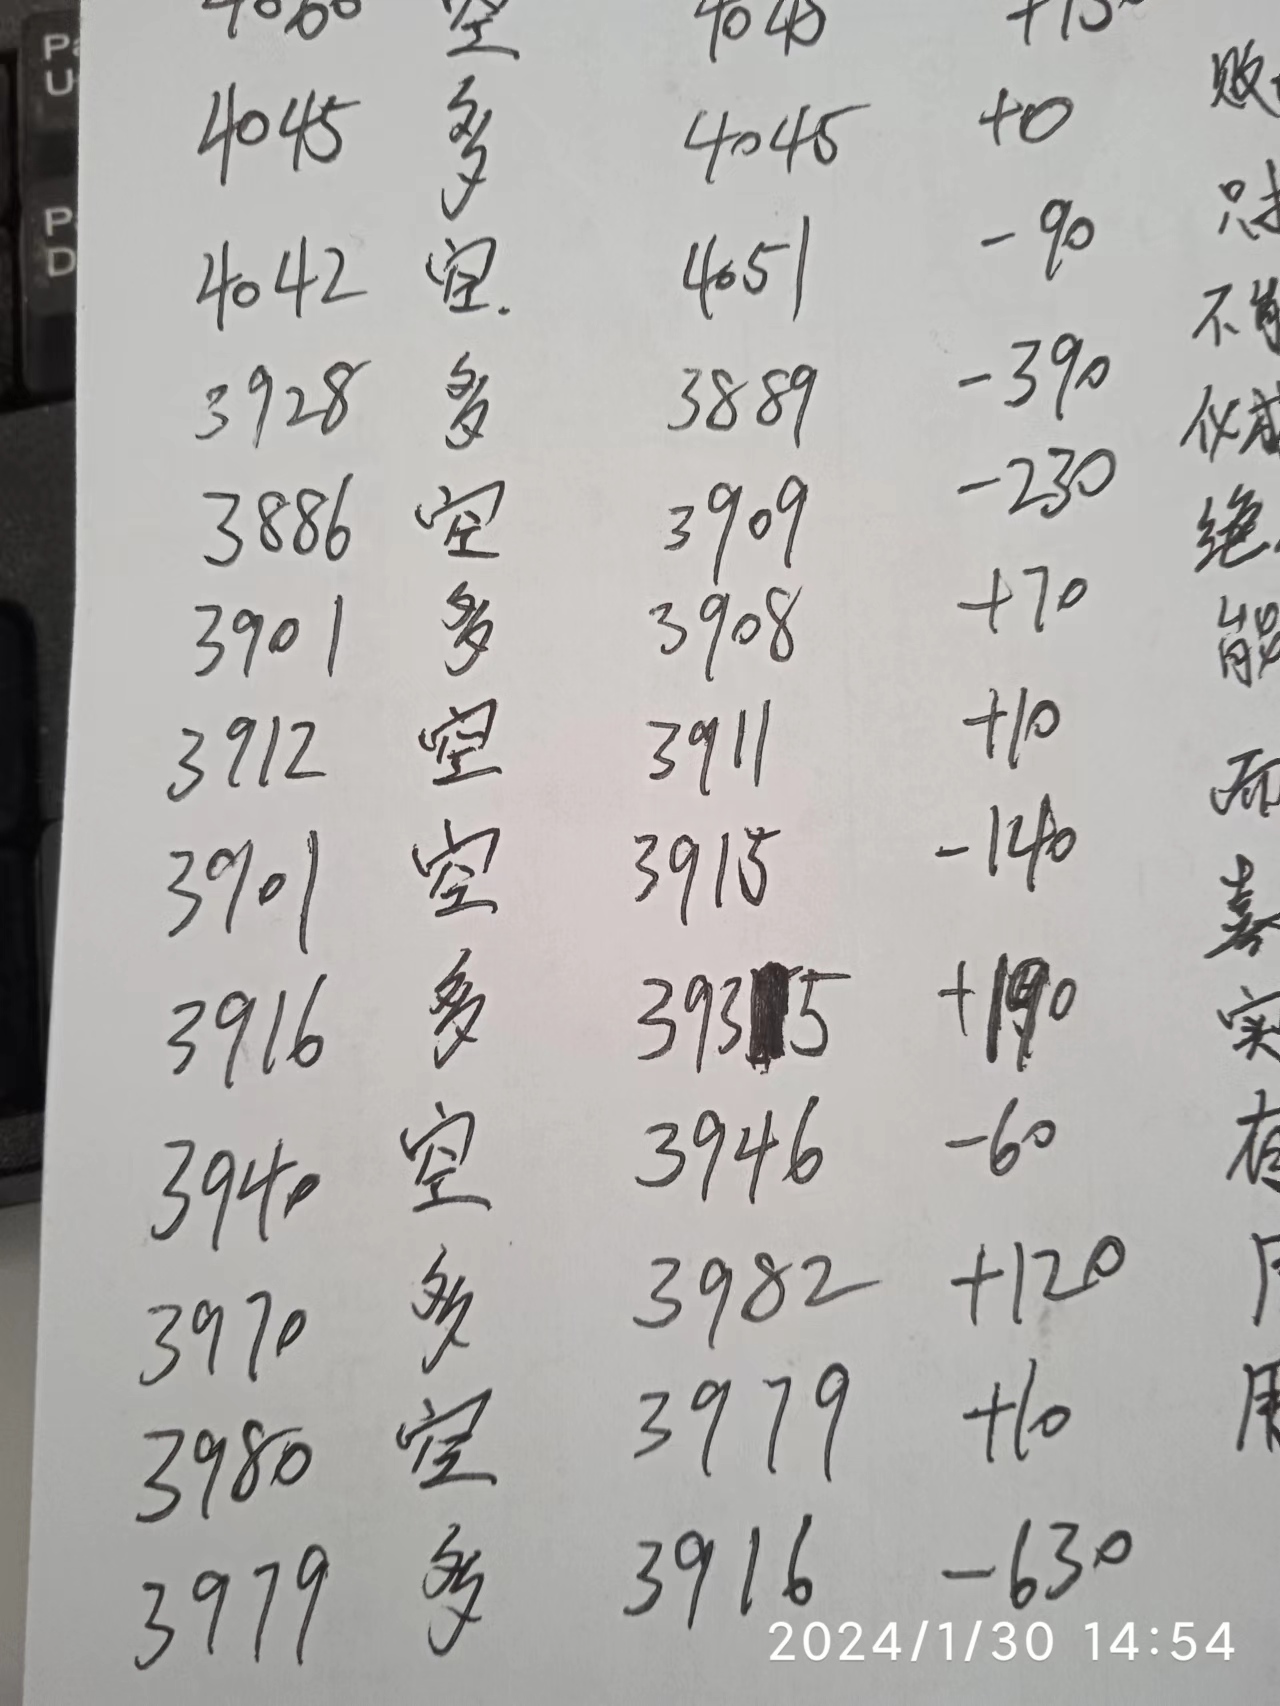 4060 空 4045 +150
4045 多 4045 +0
4042 空. 4051 -90
3928 多 3889 -390
3886 空 3909 -230
3901 多 3908 +70
3912 空 3911 +10
3901 空 3915 -140
3916 多 3935 +190
3940 空 3946 -60
3970 多 3982 +120
3980 空 3979 +10
3979 多 3916 -630
败
只
不能
仪
绝
能
而
喜
实
有
用
2024/1/30 14:54